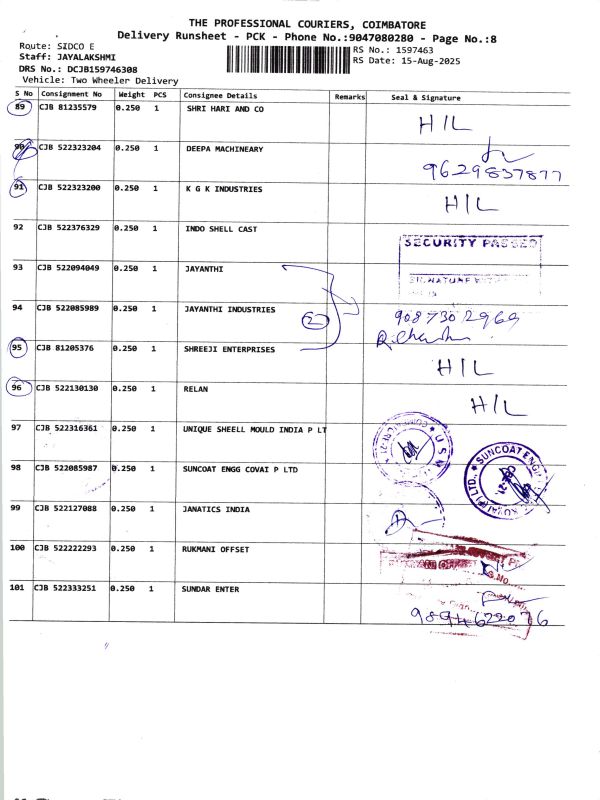 THE PROFESSIONAL COURIERS, COIMBATORE
Delivery Runsheet - PCK - Phone No.:9047080280 - Page No.:8
Route: SIDCO E
RS No.: 1597463
Staff: JAYALAKSHMI
RS Date: 15-Aug-2025
DRS No.: DCJB159746308
Vehicle: Two Wheeler Delivery
S No Consignment No Weight PCS Consignee Details Remarks Seal & Signature
89 CJB 81235579 0.250 1 SHRI HARI AND CO
H/L
90 CJB 522323204 0.250 1 DEEPA MACHINEARY
9629837877
91 CJB 522323200 0.250 1 K G K INDUSTRIES
H/L
92 CJB 522376329 0.250 1 INDO SHELL CAST
SECURITY PASSED
93 CJB 522094049 0.250 1 JAYANTHI
94 CJB 522085989 0.250 1 JAYANTHI INDUSTRIES
2
9087302969
95 CJB 81205376 0.250 1 SHREEJI ENTERPRISES
H/L
96 CJB 522130130 0.250 1 RELAN
H/L
97 CJB 522316361 0.250 1 UNIQUE SHEELL MOULD INDIA P LT
98 CJB 522085987 0.250 1 SUNCOAT ENGG COVAI P LTD
99 CJB 522127088 0.250 1 JANATICS INDIA
100 CJB 522222293 0.250 1 RUKMANI OFFSET
101 CJB 522333251 0.250 1 SUNDAR ENTER
9894622076